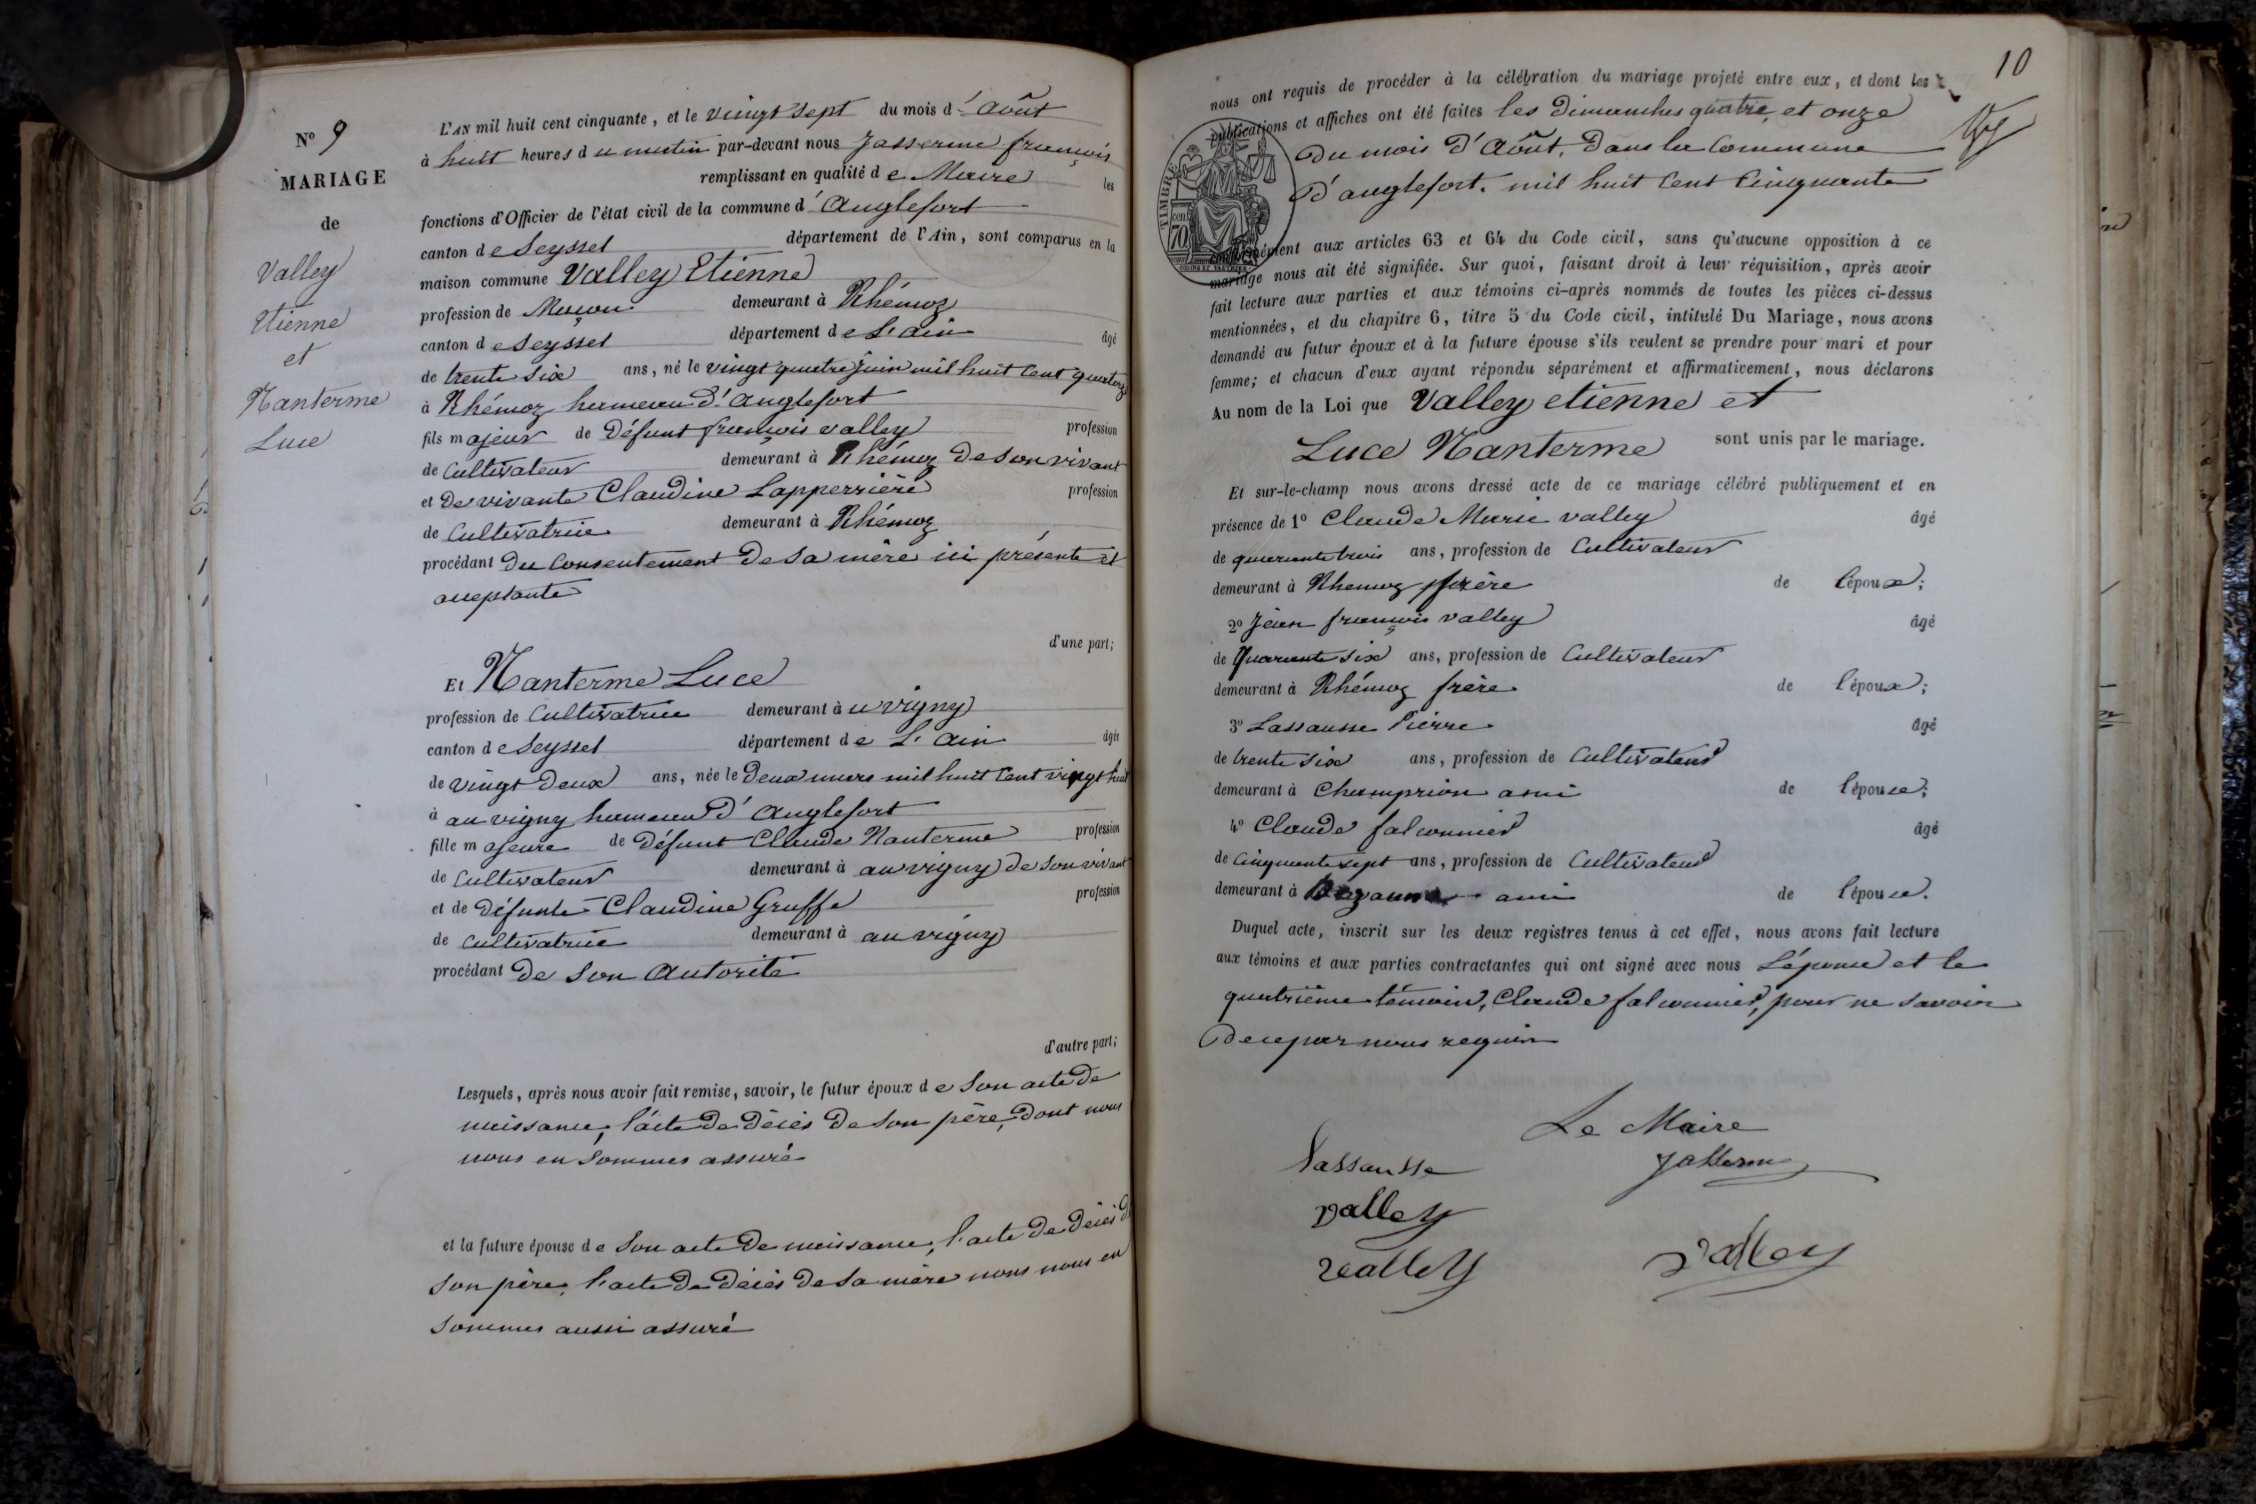 N° 9
MARIAGE
de
Valley
Etienne
et
Nanterme
Luce
L'AN mil huit cent cinquante, et le vingt sept du mois d'Août
à huit heures du matin par-devant nous Jasserme françois
remplissant en qualité de Maire les
fonctions d'Officier de l'état civil de la commune d'Anglefort
canton de Seyssel département de l'Ain, sont comparus en la
maison commune Valley Etienne
profession de Maçon demeurant à Rhémoz
canton de Seyssel département de L'ain âgé
de trente six ans, né le vingt quatre juin mil huit cent quatorze
à Rhémoz hameau d'anglefort
fils majeur de Défunt françois valley profession
de Cultivateur demeurant à Rhémoz De son vivant
et De vivante Claudine Lapperrière profession
de Cultivatrice demeurant à Rhémoz
procédant Du Consentement De sa mère ici présente et
acceptante
d'une part;
Et Nanterme Luce
profession de Cultivatrice demeurant à uvrigny
canton de Seyssel département de L'Ain âgée
de vingt Deux ans, née le Deux mars mil huit Cent vingt huit
à au vigny hameau D'Anglefort
fille majeure de Défunt Claude Nanterme profession
de Cultivateur demeurant à au vigny De son vivant
et de Défunte Claudine Gruffe profession
de Cultivatrice demeurant à au vigny
procédant De Son Autorité
d'autre part;
Lesquels, après nous avoir fait remise, savoir, le futur époux de Son acte De
naissance, l'acte De Décès De Son père, Dont nous
nous en Sommes assuré
et la future épouse de Son acte De naissance, l'acte De Décès De
Son père, l'acte De Décès De Sa mère nous nous en
Sommes aussi assuré
10
nous ont requis de procéder à la célébration du mariage projeté entre eux, et dont les
publications et affiches ont été faites les Dimanches quatre et onze
Du mois D'Août, Dans la Commune
D'anglefort. mil huit Cent Cinquante
TIMBRE
70
conformément aux articles 63 et 64 du Code civil, sans qu'aucune opposition à ce
mariage nous ait été signifiée. Sur quoi, faisant droit à leur réquisition, après avoir
fait lecture aux parties et aux témoins ci-après nommés de toutes les pièces ci-dessus
mentionnées, et du chapitre 6, titre 5 du Code civil, intitulé Du Mariage, nous avons
demandé au futur époux et à la future épouse s'ils veulent se prendre pour mari et pour
femme; et chacun d'eux ayant répondu séparément et affirmativement, nous déclarons
Au nom de la Loi que Valley etienne et
Luce Nanterme sont unis par le mariage.
Et sur-le-champ nous avons dressé acte de ce mariage célébré publiquement et en
présence de 1° Claude Marie valley âgé
de quarante trois ans, profession de Cultivateur
demeurant à Rhemoz frère de l'époux;
2° Jean françois valley âgé
de Quarante Six ans, profession de Cultivateur
demeurant à Rhémoz frère de l'époux;
3° Lassausse Pierre âgé
de trente Six ans, profession de Cultivateur
demeurant à Champrion ami de l'épouse;
4° Claude falconnier âgé
de Cinquante sept ans, profession de Cultivateur
demeurant à ami de l'épouse.
Duquel acte, inscrit sur les deux registres tenus à cet effet, nous avons fait lecture
aux témoins et aux parties contractantes qui ont signé avec nous L'épouse et le
quatrième témoin, Claude falconnier, pour ne Savoir
De ce par nous requis
Le Maire
Lassausse Jasserme
valley
valley valley